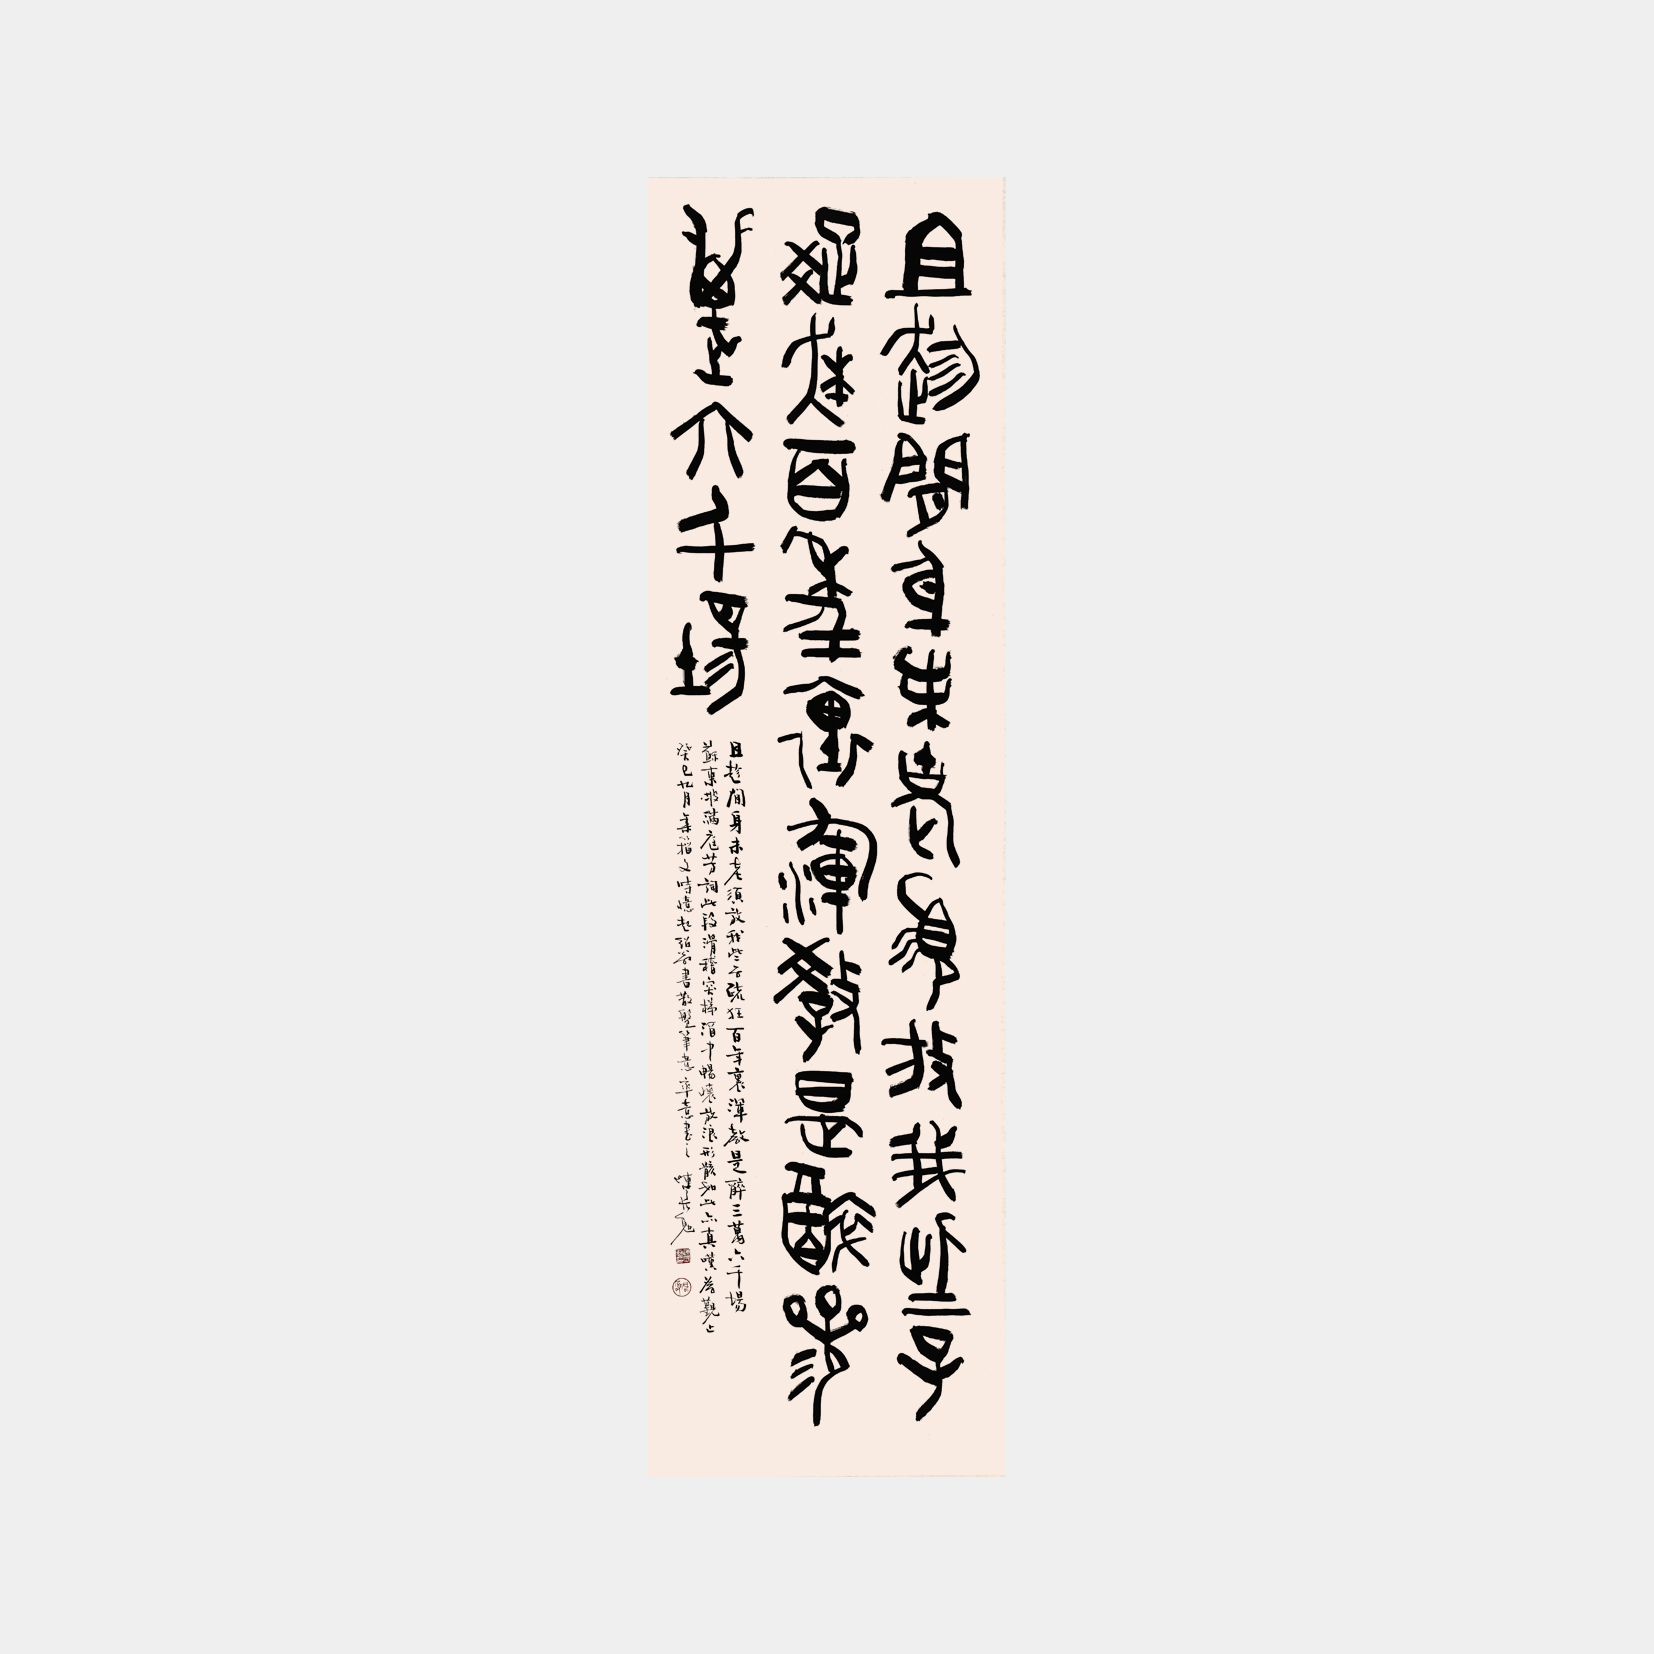 且趁閒身未老須放我些子
疏狂百年裏渾教是醉參
萬六千場
且趁閒身未老須放我些子疏狂百年裏渾教是醉三萬六千場
蘇東坡滿庭芳詞此段滑稽突梯酒中暢懷放浪形骸如此亦真嘆為觀止
癸巳九月 文時憶起 書散盤筆意率意書之